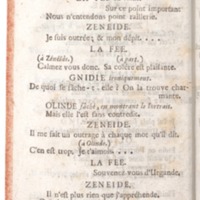 Sur ce point important
Nous n'entendons point raillerie.
ZENEIDE.
Je suis outrée; & mon dépit....
LA FÉE.
(à Zénéide.) (à part.)
Calmez vous donc. Sa colere est plaisante.
GNIDIE ironiquement.
De quoi se fâche-t-elle! On la trouve charmante.
OLINDE fâché, en montrant le Portrait.
Mais elle l'est sans contredit.
ZENEIDE.
Il me fait un outrage à chaque mot qu'il dit.
(à Olinde.)
C'en est trop. Je t'aimois....
LA FÉE.
Souvenez vous d'Urgande.
ZENEIDE.
Il n'est plus rien que j'appréhende.